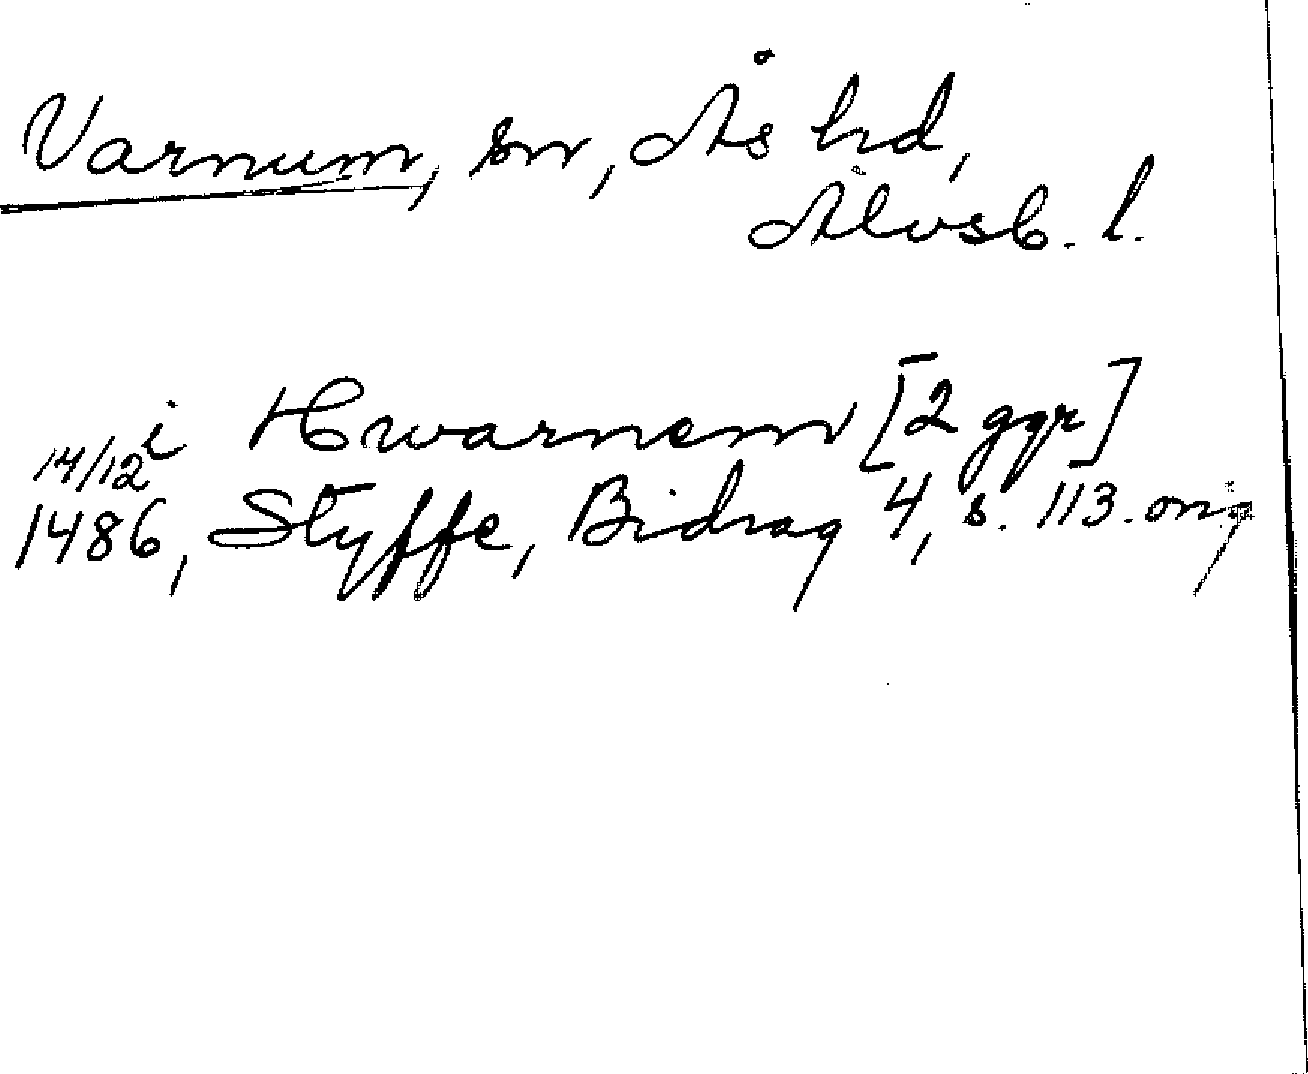 Varnum, sn, Ås hd,
Älvsb. l.
i Hwarnem [2 ggr]
14/12
1486, Styffe, Bidrag 4, s. 113. orig